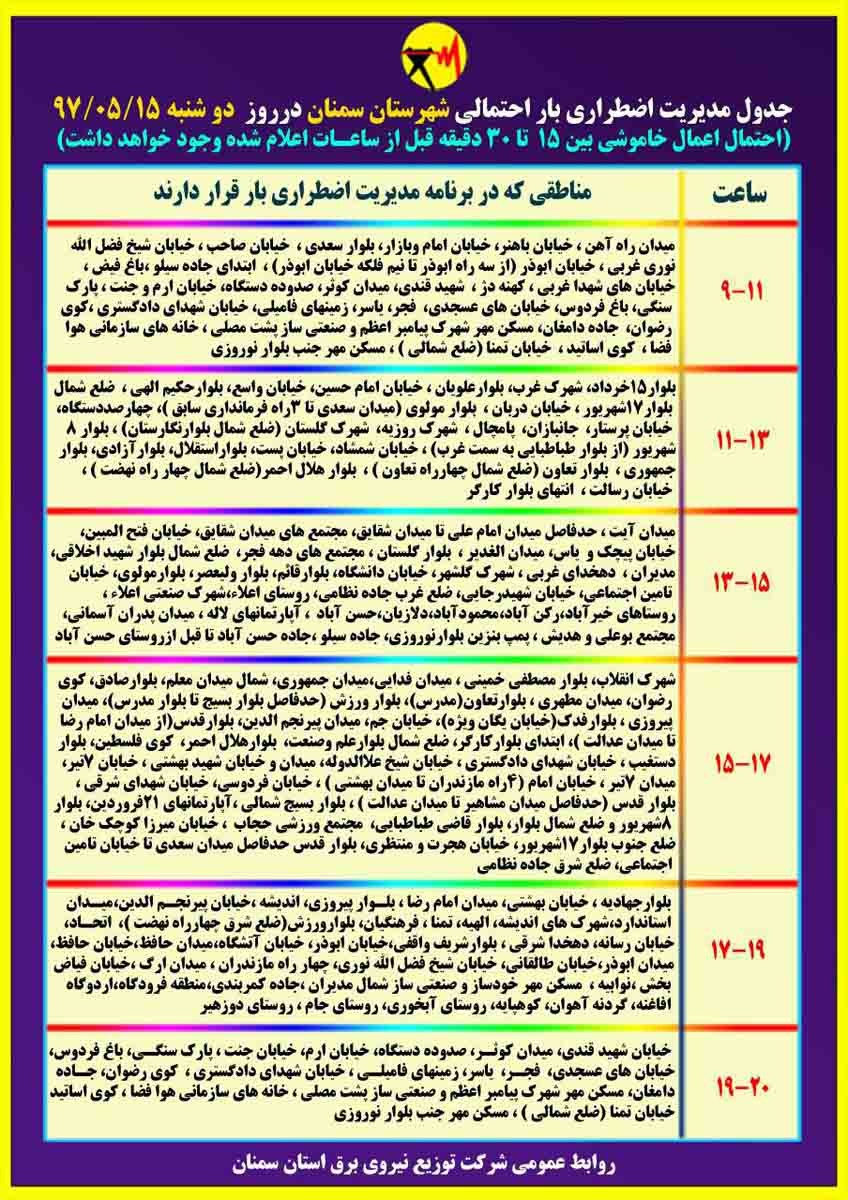 جدول مدیریت اضطراری بار احتمالی شهرستان سمنان درروز دو شنبه ۹۷/۰۵/۱۵
(احتمال اعمال خاموشی بین ۱۵ تا ۳۰ دقیقه قبل از ساعـات اعلام شده وجود خواهد داشت)
ساعت
مناطقی که در برنامه مدیریت اضطراری بار قرار دارند
۹-۱۱
میدان راه آهن ، خیابان باهنر، خیابان امام وبازار، بلوار سعدی ، خیابان صاحب ، خیابان شیخ فضل الله
نوری غربی ، خیابان ابوذر (از سه راه ابوذر تا نیم فلکه خیابان ابوذر) ، ابتدای جاده سیلو ،باغ فیض ،
خیابان های شهدا غربی ، کهنه دژ ، شهید قندی، میدان کوثر، صدوده دستگاه، خیابان ارم و جنت ، پارک
سنگی، باغ فردوس، خیابان های عسجدی، فجر، یاسر، زمینهای فامیلی، خیابان شهدای دادگستری ،کوی
رضوان، جاده دامغان، مسکن مهر شهرک پیامبر اعظم و صنعتی ساز پشت مصلی ، خانه های سازمانی هوا
فضا ، کوی اساتید ، خیابان تمنا (ضلع شمالی ) ، مسکن مهر جنب بلوار نوروزی
۱۱-۱۳
بلوار۱۵خرداد، شهرک غرب، بلوارعلویان ، خیابان امام حسین، خیابان واسع، بلوارحکیم الهی ، ضلع شمال
بلوار۱۷شهریور ، خیابان دربان ، بلوار مولوی (میدان سعدی تا ۳راه فرمانداری سابق )، چهارصددستگاه،
خیابان پرستار، جانبازان، پامچال ، شهرک روزیه، شهرک گلستان (ضلع شمال بلوارنگارستان) ، بلوار ۸
شهریور (از بلوار طباطبایی به سمت غرب) ، خیابان شمشاد، خیابان پست، بلواراستقلال، بلوارآزادی، بلوار
جمهوری ، بلوار تعاون (ضلع شمال چهارراه تعاون ) ، بلوار هلال احمر(ضلع شمال چهار راه نهضت ) ،
خیابان رسالت ، انتهای بلوار کارگر
۱۳-۱۵
میدان آیت ، حدفاصل میدان امام علی تا میدان شقایق، مجتمع های میدان شقایق، خیابان فتح المبین،
خیابان پیچک و یاس، میدان الغدیر ، بلوار گلستان ، مجتمع های دهه فجر، ضلع شمال بلوار شهید اخلاقی،
مدیران ، دهخدای غربی ، شهرک گلشهر، خیابان دانشگاه، بلوارقائم، بلوار ولیعصر، بلوارمولوی، خیابان
تامین اجتماعی، خیابان شهیدرجایی، ضلع غرب جاده نظامی، روستای اعلاء،شهرک صنعتی اعلاء ،
روستاهای خیرآباد،رکن آباد،محمودآباد،دلازیان،حسن آباد ، آپارتمانهای لاله ، میدان پدران آسمانی،
مجتمع بوعلی و هدیش ، پمپ بنزین بلوارنوروزی، جاده سیلو ،جاده حسن آباد تا قبل ازروستای حسن آباد
۱۵-۱۷
شهرک انقلاب، بلوار مصطفی خمینی ، میدان فدایی،میدان جمهوری، شمال میدان معلم، بلوارصادق، کوی
رضوان، میدان مطهری ، بلوارتعاون(مدرس)، بلوار ورزش (حدفاصل بلوار بسیج تا بلوار مدرس)، میدان
پیروزی ، بلوارفدک(خیابان یگان ویژه)، خیابان جم، میدان پیرنجم الدین، بلوارقدس(از میدان امام رضا
تا میدان عدالت )، ابتدای بلوارکارگر، ضلع شمال بلوارعلم وصنعت، بلوارهلال احمر، کوی فلسطین، بلوار
دستغیب ، خیابان شهدای دادگستری ، خیابان شیخ علاالدوله، میدان و خیابان شهید بهشتی ، خیابان ۷تیر،
میدان ۷تیر ، خیابان امام (۴راه مازندران تا میدان بهشتی ) ، خیابان فردوسی، خیابان شهدای شرقی ،
بلوار قدس (حدفاصل میدان مشاهیر تا میدان عدالت ) ، بلوار بسیج شمالی ،آپارتمانهای ۲۱فروردین، بلوار
۸شهریور و ضلع شمال بلوار، بلوار قاضی طباطبایی، مجتمع ورزشی حجاب ، خیابان میرزا کوچک خان ،
ضلع جنوب بلوار۱۷شهریور، خیابان هجرت و منتظری، بلوار قدس حدفاصل میدان سعدی تا خیابان تامین
اجتماعی، ضلع شرق جاده نظامی
۱۷-۱۹
بلوارجهادیه ، خیابان بهشتی، میدان امام رضا ، بلـوار پیروزی، اندیشه ،خیابان پیرنجـم الدین،میـدان
استاندارد،شهرک های اندیشه، الهیه، تمنا ، فرهنگیان، بلوارورزش(ضلع شرق چهارراه نهضت )، اتحـاد،
خیابان رسانه، دهخدا شرقی ، بلوارشریف واقفی،خیابان ابوذر، خیابان آتشگاه،میدان حافظ،خیابان حافظ،
میدان ابوذر،خیابان طالقانی، خیابان شیخ فضل الله نوری، چهار راه مازندران ، میدان ارگ ،خیابان فیاض
بخش ،نوابیه ، مسکن مهر خودساز و صنعتی ساز شمال مدیران ،جاده کمربندی،منطقه فرودگاه،اردوگاه
افاغنه، گردنه آهوان، کوهپایه، روستای آبخوری، روستای جام ، روستای دوزهیر
۱۹-۲۰
خیابان شهید قندی، میدان کوثـر، صدوده دستگاه، خیابان ارم، خیابان جنت ، پارک سنگـی، باغ فردوس،
خیابان های عسجدی، فجـر، یاسر، زمینهای فامیلـی ، خیابان شهدای دادگستری ، کوی رضوان، جـاده
دامغان، مسکن مهر شهرک پیامبر اعظم و صنعتی ساز پشت مصلی ، خانه های سازمانی هوا فضا ، کوی اساتید
خیابان تمنا (ضلع شمالی ) ، مسکن مهر جنب بلوار نوروزی
روابط عمومی شرکت توزیع نیروی برق استان سمنان